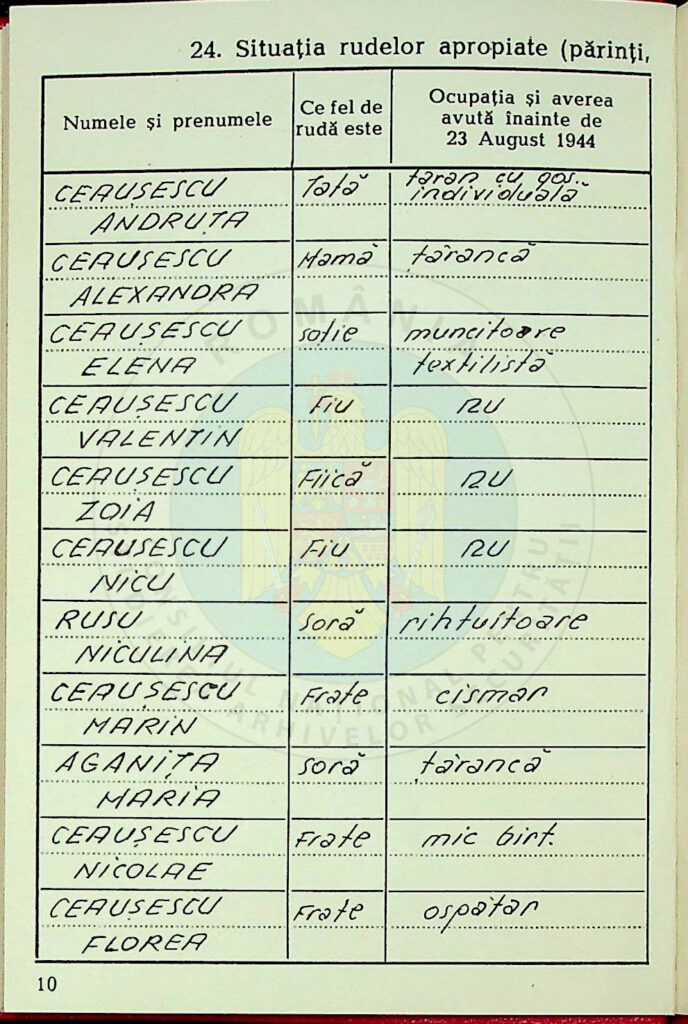 24. Situația rudelor apropiate (părinți,
Numele și prenumele
Ce fel de
rudă este
Ocupația și averea
avută înainte de
23 August 1944
CEAUȘESCU
ANDRUȚA
Tată
țăran cu gos.
individuală
CEAUȘESCU
ALEXANDRA
Mamă
țărancă
CEAUȘESCU
ELENA
soție
muncitoare
textilistă
CEAUȘESCU
VALENTIN
Fiu
NU
CEAUȘESCU
ZOIA
Fiică
NU
CEAUȘESCU
NICU
Fiu
NU
RUSU
NICULINA
soră
rihtuitoare
CEAUȘESCU
MARIN
Frate
cismar
AGANIȚA
MARIA
soră
țărancă
CEAUȘESCU
NICOLAE
Frate
mic birt.
CEAUȘESCU
FLOREA
Frate
ospătar
10
ROMÂNIA
CONSILIUL NAȚIONAL PENTRU
ARHIVELOR SECURITĂȚII